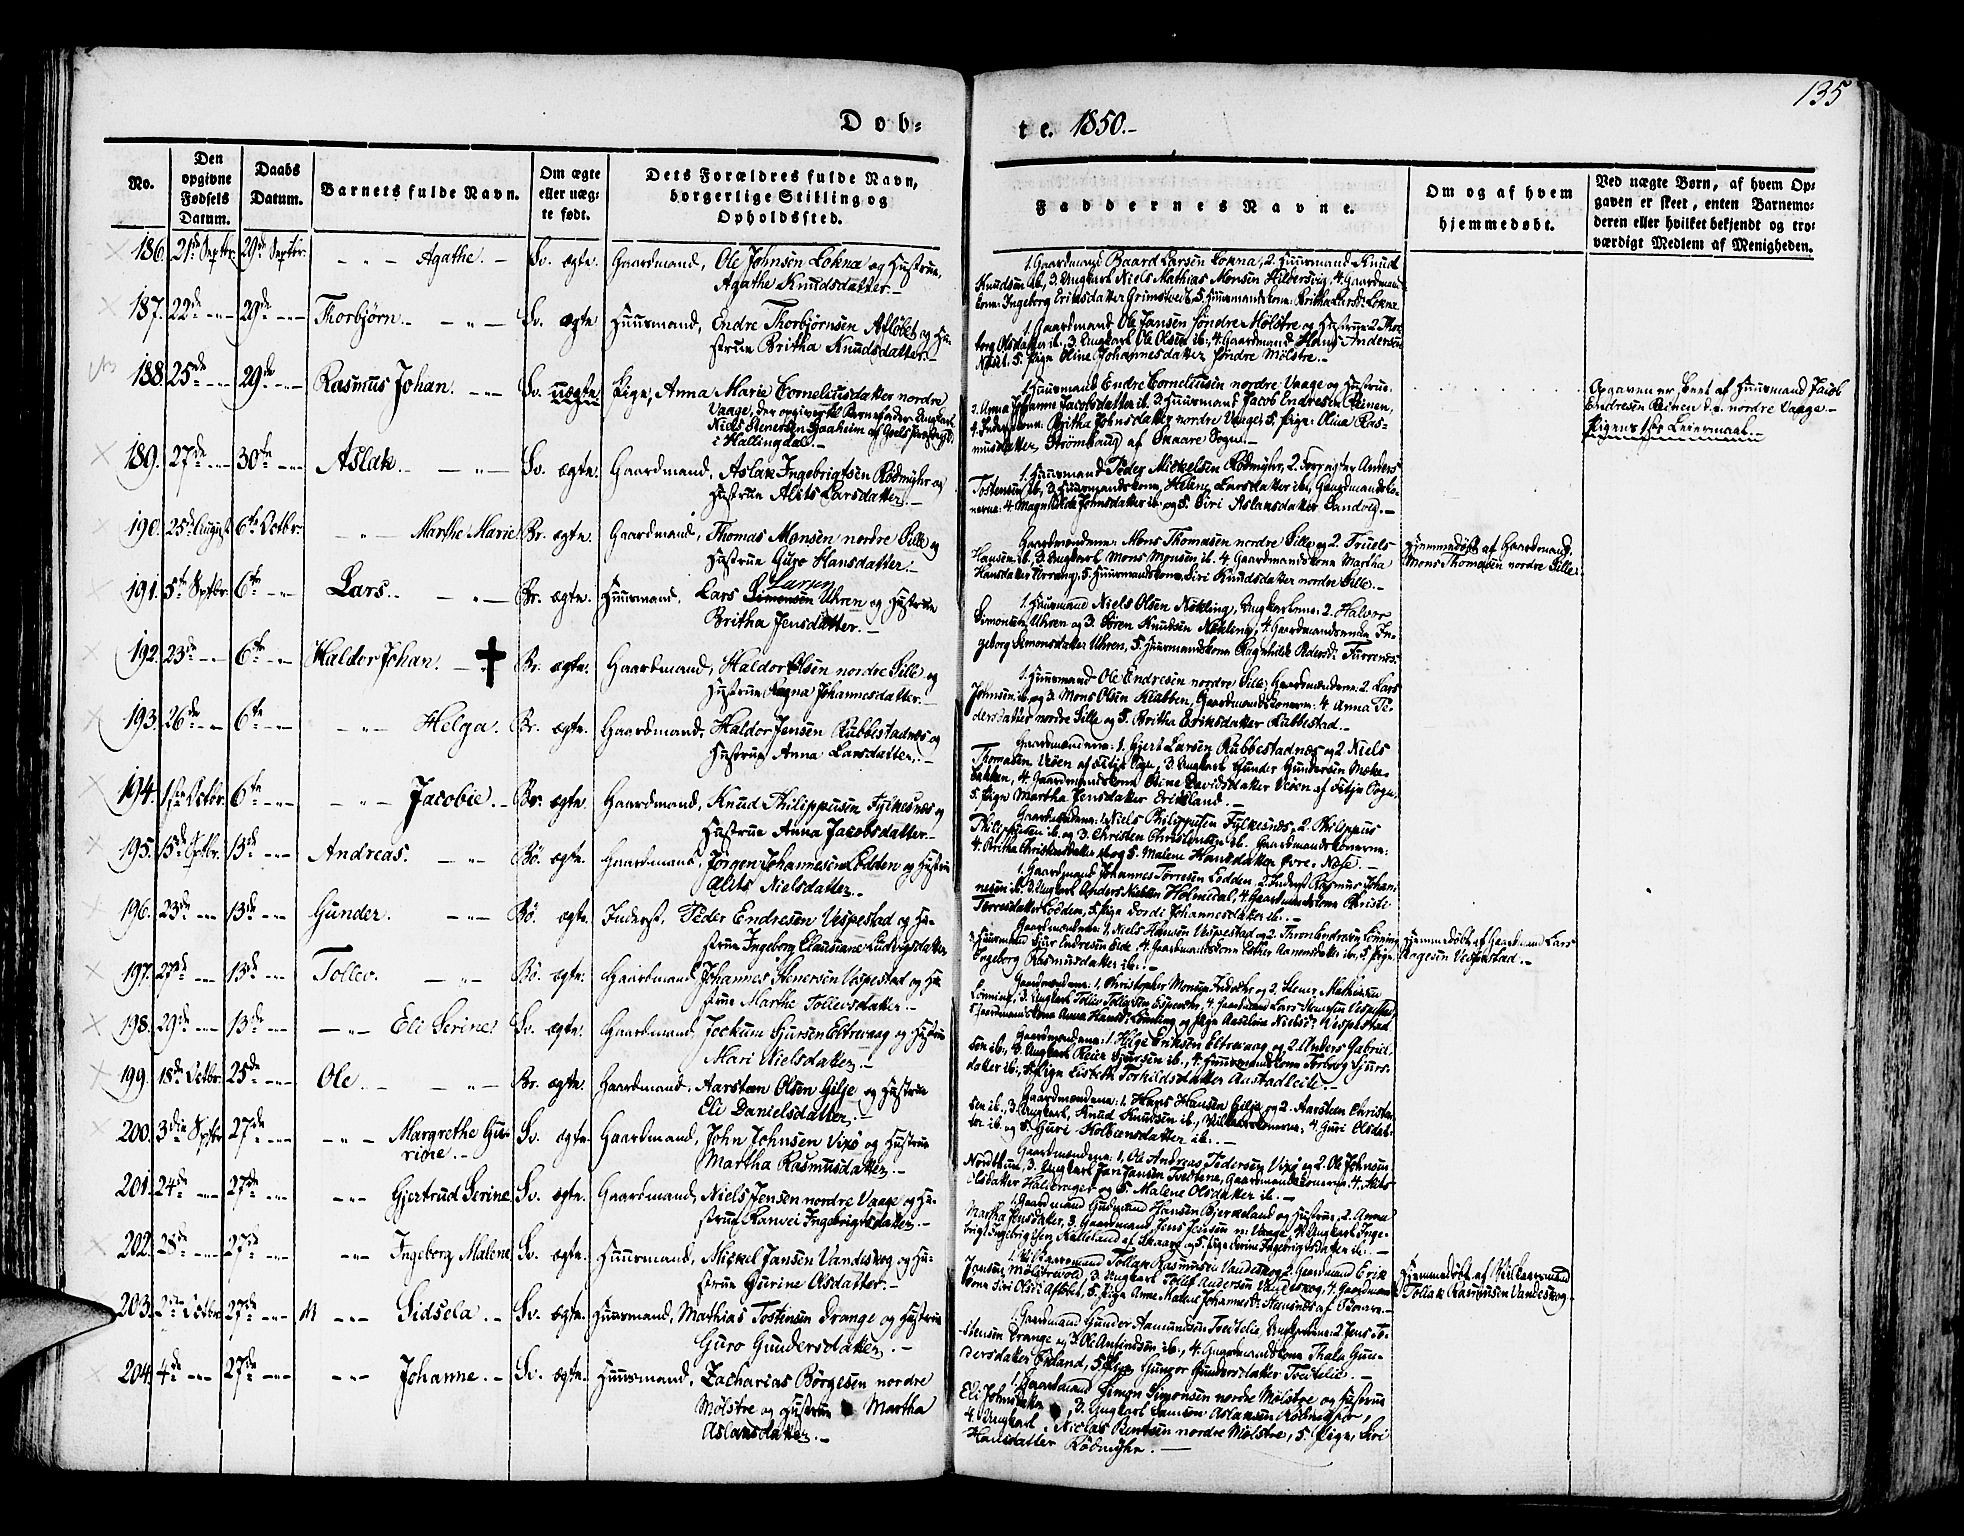 135
Dob=
te. 1850.-
No.
Den opgivne Fødsels Datum.
Daabs Datum.
Barnets fulde Navn.
Om ægte eller uæg- te født.
Dets Forældres fulde Navn, borgerlige Stilling og Opholdssted.
Faddernes Navne.
Om og af hvem hjemmedøbt.
Ved uægte Børn, af hvem Op- gaven er skeet, enten Barnemo- deren eller hvilket bekjendt og tro- værdigt Medlem af Menigheden.
186. 21de Septbr. 29de Septbr. Agathe. Sv. ægte. Gaardmand, Ole Johnsen Lokna og Hustrue,
Agathe Knudsdatter.
187. 22de 29de Thorbjørn. Sv. ægte. Huusmand, Endre Thorbjørnsen og Hu-
strue Britha Knudsdatter.
188. 25de 29de Rasmus Johan. Sv. uægte. Pige, Anna Marie Corneliusdatter nordre
Vaage, der opgiver til Barnefader Ungkarl
Niels
i Hallingdal.
189. 27de 30te Aslak. Sv. ægte. Gaardmand, Aslak Ingebrigtsen Rødmyhr og
Hustrue Alits Larsdatter.
190. 25de August 6te Octbr. Marthe Marie. Br. ægte. Gaardmand, Thomas Monsen nordre Sille og
Hustrue Guro Hansdatter.
191. 5te Septbr. 6te Lars. Br. ægte. Huusmand, Lars Larsen Uhren og Hustrue
Britha Jensdatter.
192. 23de 6te Haldor Johan. Br. ægte. Gaardmand, Haldor Olsen nordre Sille og
Hustrue Ragna Johannesdatter.
193. 26de 6te Helga. Br. ægte. Gaardmand, Haldor Jensen Rubbestadnæs og
Hustrue Anna Larsdatter.
194. 1ste Octbr. 6te Jacobie. Br. ægte. Gaardmand, Knud Philippusen Fylkesnæs og
Hustrue Anna Jacobsdatter.
195. 15de Septbr. 13de Andreas. Bö. ægte. Gaardmand, Jørgen Johannesen Lodden og Hustrue
Alits Nielsdatter.
196. 23de 13de Gunder. Bö. ægte. Inderst, Peder Endresen Vespestad og Hu-
strue Ingeborg Clausiane Ludvigsdatter
197. 27de 13de Tollev. Bö. ægte. Gaardmand Johannes Stenersen Vespestad og Hu-
strue Marthe Tollevsdatter.
198. 29de 13de Eli Serine. Sv. ægte. Gaardmand, Jockum Sjursen Eltrevaag og Hustrue
Mari Nielsdatter.
199. 18de Octbr. 25de Ole. Br. ægte. Gaardmand, Aarstæn Olsen Gilje og Hustrue
Eli Danielsdatter.
200. 3die Septbr 27de Margrethe Gu-
rine. Sv. ægte. Gaardmand, John Johnsen Vixø og Hustrue
Martha Rasmusdatter.
201. 24de 27de Gjertrud Serine. Sv. ægte. Gaardmand, Niels Jensen nordre Vaage og Hu-
strue Ranvei Ingebrigtsdatter.
202. 28de 27de Ingeborg Malene Sv. ægte. Huusmand, Mickel Jansen Vandeskog og Hu-
strue Gurine Asdatter.
203. Octbr 27de Sidsela. Sv. ægte. Huusmand, Mathias Tostensen Drange og Hustrue
Guro Gundersdatter.
204. 4de 27de Johanne. Sv. ægte. Huusmand, Zacharias Børgesen nordre
Mølstre og Hustrue Martha
Aslansdatter.
1. Gaardmand Baard Larsen Lokna, 2. Huusmand Knud
Knudsen ib., 3. Ungkarl Niels Mathias Monsen Hilversvig, 4. Gaardmands
kone Ingeborg Eriksdatter Grimstvedt, 5. Huusmandskone Britha Larsd: Lokna
1. Gaardmand Ole Jansen søndre Mølstre og Hustrue 2. Thor-
borg Olsdatter ib., 3. Ungkarl Ole Olsen ib., 4. Gaardmand Hans Andersen
5. Pige Oline Johannesdatter søndre Mølstre.
1. Huusmand Endre Corneliusen nordre Vaage og Hustrue
2. Anna Johanne Jacobsdatter ib. 3. Huusmand Jacob Endresen Reinen,
Britha Johnsdatter nordre Vaage, 5. Pige Olina Ras-
musdatter Strømhaug af Skaare Sogn.
1. Huusmand Peder Mickelsen Rødmyhr, 2. Anders
Tostensen ib., 3. Huusmandskone Helene Larsdatter ib., Gaardmandsko-
nerne: 4. Magnhilde Johnsdatter ib. og 5. Siri Aslansdatter Sandvig.
Gaardmændene: 1. Mons Thomasen nordre Sille og 2. Truels
Hansen ib., 3. Ungkarl Mons Monsen ib. 4. Gaardmandskone Martha
Hansdatter 5. Huusmandskone Siri Knudsdatter nordre Sille.
1. Huusmand Niels Olsen Nøkling, Ungkarlene: 2. Halvor
Simonsen Uhren og 3. Søren Knudsen Nøkling, 4. Gaardmandsenke In-
geborg Simonsdatter Uhren, 5. Huusmandskone
1. Huusmand Ole Endresen nordre Sille, Gaardmændene: 2. Lars
Johnsen ib. og 3. Mons Olsen Klubben, Gaardmandskonerne: 4. Anna Pe-
dersdatter nordre Sille og 5. Britha Eriksdatter Rubbestad.
Gaardmændene: 1. Gjert Larsen Rubbestadnæs og 2. Niels
Thomasen Vesen af Fitje Sogn, 3. Ungkarl Gunder Gundersen
4. Gaardmandskone Stine Davidsdatter Vesen af Fitje Sogn,
5. Pige Martha Jensdatter Eriksland.
Gaardmændene: 1. Niels Philippusen Fylkesnæs, 2. Philippus
Philippusen ib. og 3. Christen Christensen ib. Gaardmandskonerne:
4. Britha Christensdatter ib. og 5. Malene Hansdatter øvre Næse.
1. Gaardmand Johannes Torresen Lodden, 2. Inderst Rasmus Johan-
nesen ib. 3. Ungkarl Anders Nielsen Holmedal, 4. Gaardmandskone Christi-
Torresdatter Lodden, 5. Pige Dordi Johannesdatter ib.
Gaardmændene: 1. Niels Hansen Vespestad og 2. Lønning
3. Huusmand Sjur Endresen Eide, 4. Gaardmandskone Esther Aamundsdatter ib., 5. Pige
Ingeborg Rasmusdatter ib.
Gaardmændene: 1. Christopher og 2. Stener Mathiesen
Lønning, 3. Ungkarl Tollev Tollevsen 4. Gaardmand Lars Stenersen Vespestad
Anna Hansd: Lønning og Pige Nielsd: Vespestad
Gaardmændene: 1. Helge Eriksen Eltravaag og 2. Anders Gabriel-
sen ib., 3. Ungkarl Reier Sjursen ib., 4. Huusmandskone Torborg Sjurs-
datter ib., 5. Pige Lisbeth Torkildsdatter Aastadleite.
Gaardmændene: 1. Hans Hansen Gilje og 2. Aarstæn Christen-
sen ib., 3. Ungkarl Knud Knudsen ib., 4. Guri Olsdat-
ter ib. og 5. Guri Kolbensdatter ib.
Gaardmændene: 1. Ole Andreas Pedersen Vixø og 2. Ole Johnsen
Nordthun, 3. Ungkarl Jan Jansen Tvedtene, Gaardmandskonerne: 4. Alits
Olsdatter og 5. Malene Olsdatter ib.
1. Gaardmand Gudmand Hansen Bjerkeland og Hustrue 2. Anna
Martha Jensdatter, 3. Gaardmand Jens Jensen n: Vaage, 4. Ungkarl Inge-
brigt Ingebrigtsen Kalleland af Skaare og 5. Pige Serine Ingebrigtsdatter ib.
Tollak Rasmusen Vandeskog, 2. Gaardmand Erik
Jansen Mølstrevold, 3. Ungkarl Tollef Andersen Vandeskog, 4. Gaardmands
kone Siri Olsd: 5. Pige Anne Malene Johannesd:
1. Gaardmand Gunder Aamundsen Tveitelie, Ungkarlene: 2. Jens To-
stensen Drange og 3. Ole ib., 4. Gaardmandskone Thala Gun-
dersdatter Økland, 5. Pige Gunvor Gundersdatter Tveitelie.
1. Gaardmand Simon Simonsen nordre Mølstre og Hustrue
Eli Johnsdatter, 3. Ungkarl Samson Aslansen Rødmyhr,
4. Ungkarl Niclas Bentsen nordre Mølstre, 5. Pige Siri
Hansdatter Rødmyhr.
Hjemmedøbt af Gaardmand
Mons Thomasen nordre Sille.
Hjemmedøbt af Gaardmand Lars
Aagesen Vespestad.
Hjemmedøbt af
Tollak Rasmusen Vandeskog.
Opgaven er skeet af Huusmand Jacob
Endresen Reinen nordre Vaage.
Pigens 1ste Leiermaal.